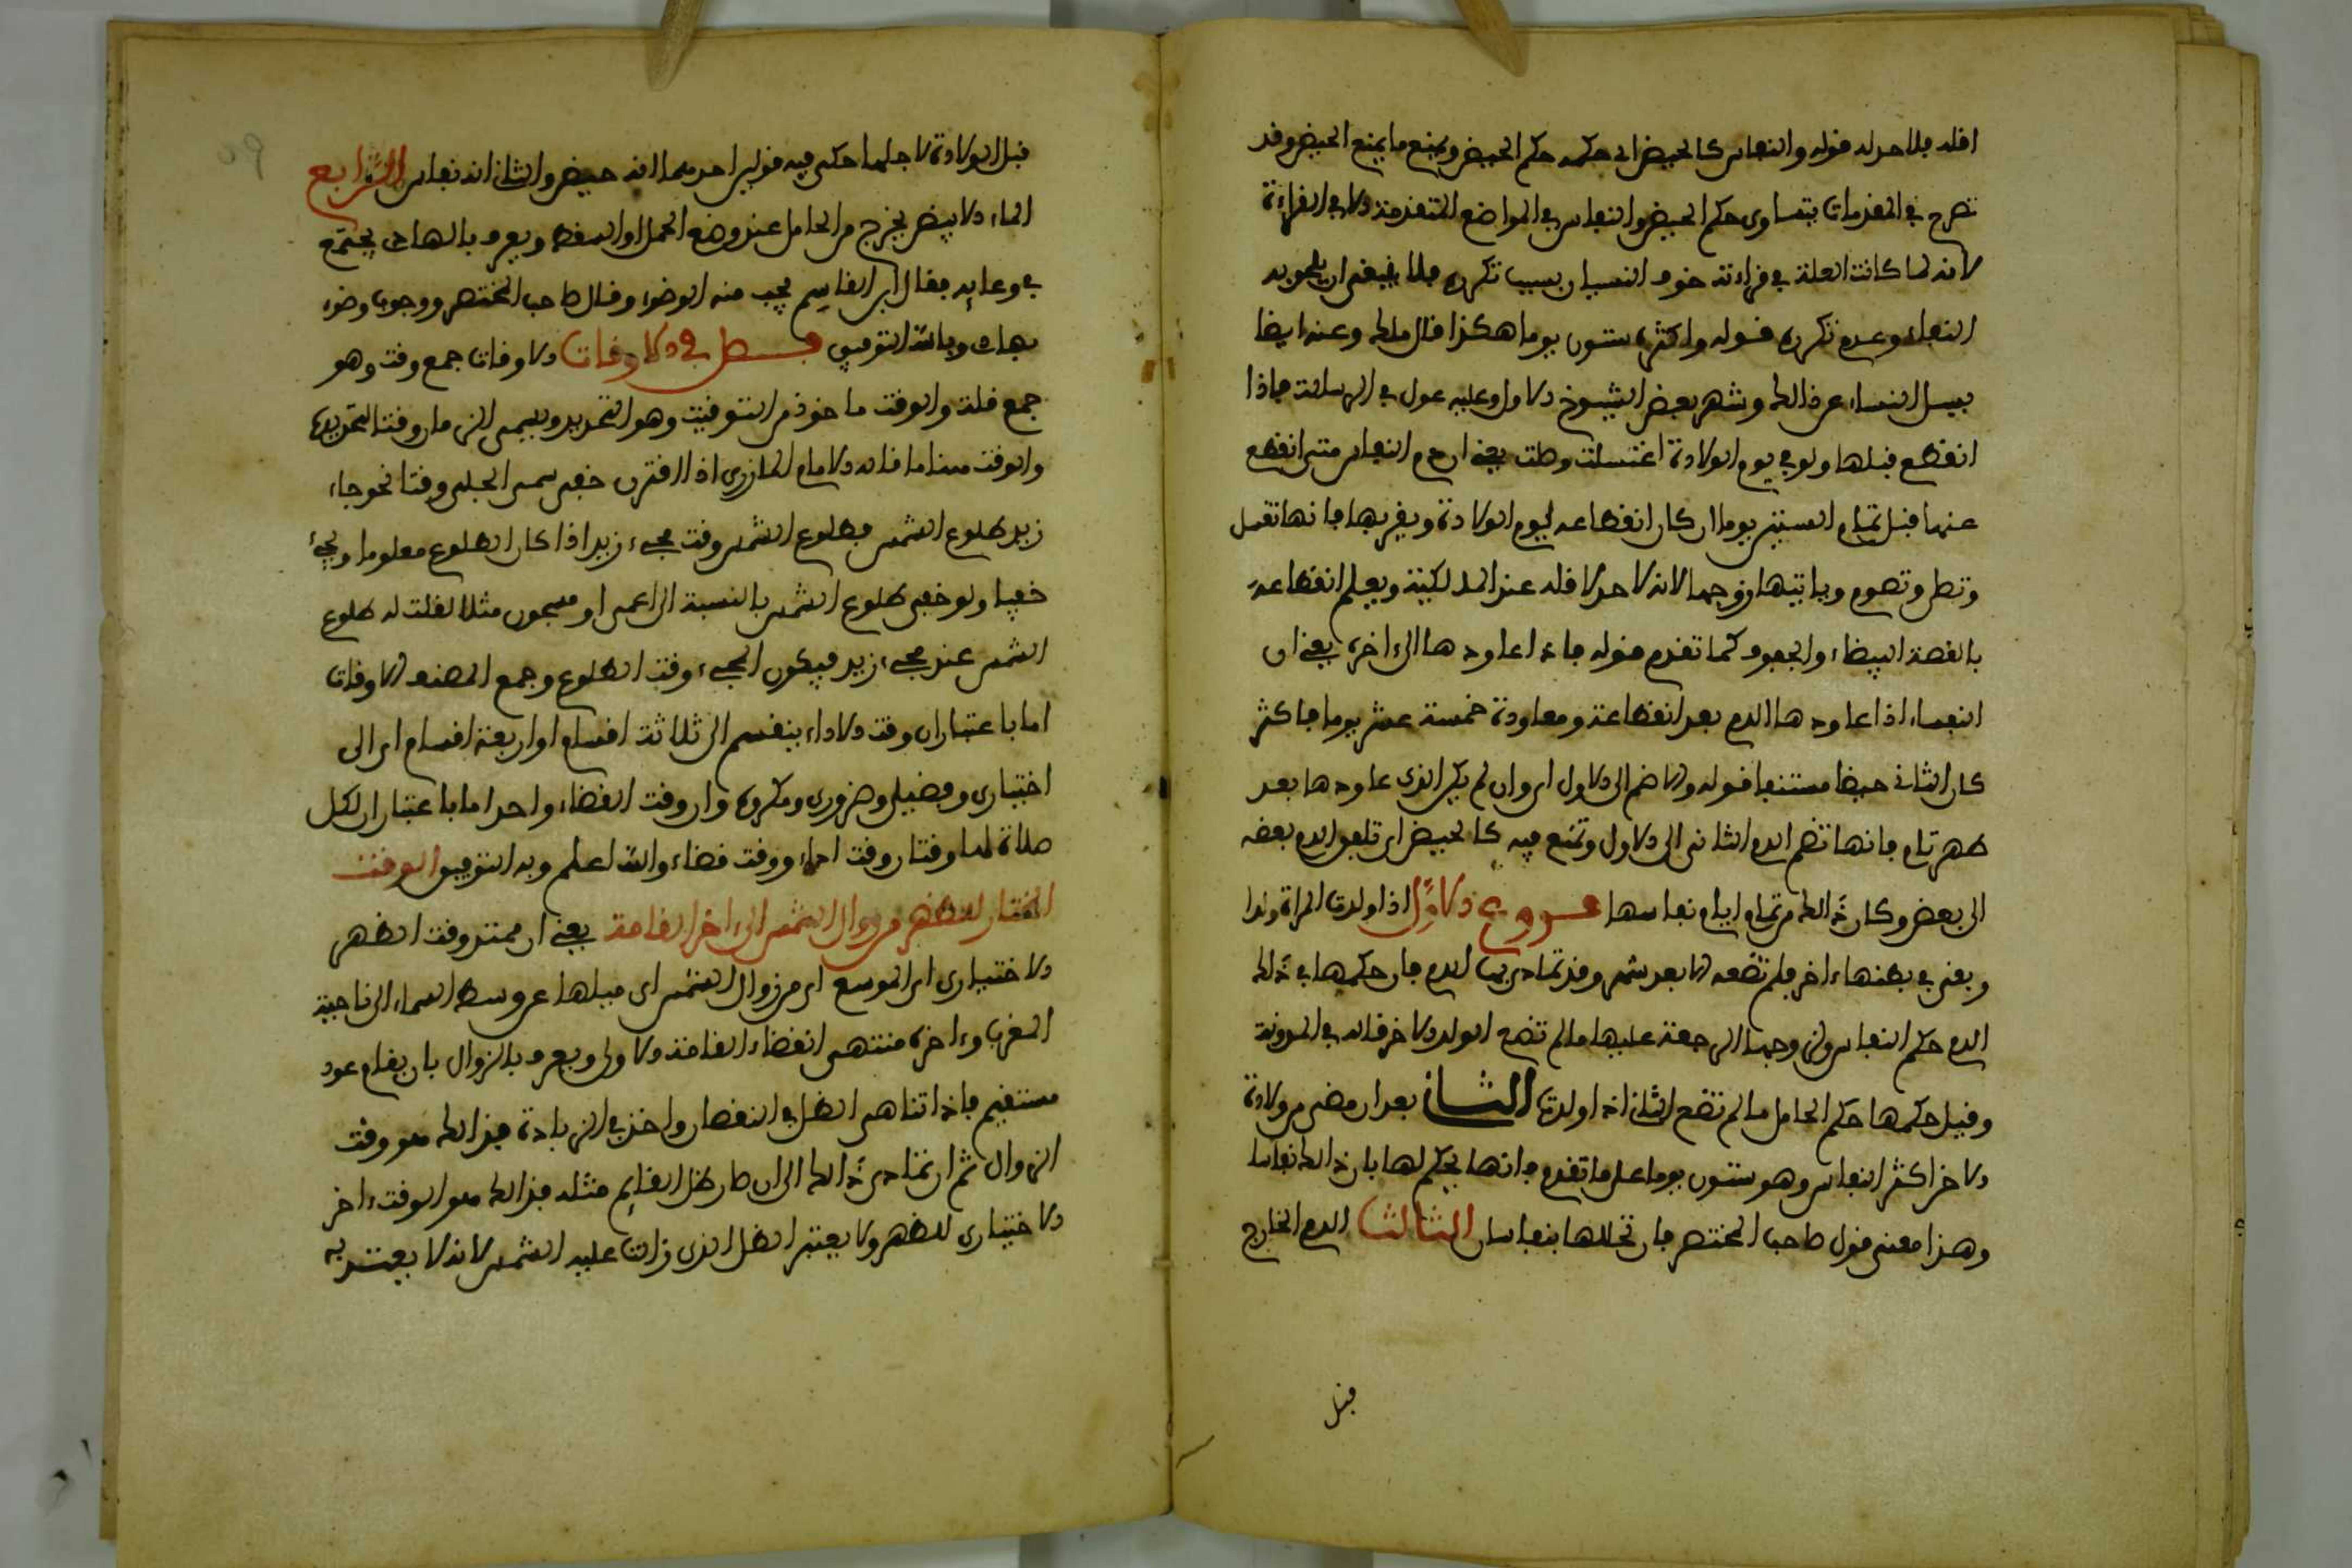 اقله فلا حد له قوله والنفاس كالحيض اي حكمه حكم الحيض ويمنع ما يمنع الحيض وقد
صرح في المقدمات بتساوي حكم الحيض والنفاس في المواضع المتقدمة الا في القراءة
لانه لما كانت العلة في قراءته خوف النسيان بسبب تكرره فلا ينبغي ان يلحق به
النفاس وعدم تكرره قوله واكثره ستون يوما هكذا قال ملك وعنه ايضا
يسل النساء عن ذالك وشهر بعض الشيوخ الاول وعليه عول في الرسالة فاذا
انقطع قبلها ولو في يوم الولادة اغتسلت وصلت يعني ان دم النفاس متى انقطع
عنها قبل تمام الستين يوما ان كان انقطاعه ليوم الولادة ويقربها فانها تغسل
وتصل وتصوم وياتيها زوجها لانه لا حد لاقله عند المالكية ويعلم انقطاعه
بالقصة البيضاء والجفوف كما تقدم قوله فاذا عاودها الى اخره يعني ان
النفساء اذا عاودها الدم بعد انقطاعه ومعاودة خمسة عشر يوما فاكثر
كان الثاني حيضا مستنفا قوله والا ضم الى الاول اي وان لم يكن الذي عاودها بعد
طهر تام فانها تضم الدم الثاني الى الاول وتمنع فيه كالحيض اي تلفق الدم بعضه
الى بعض وكان ذالك من تمام ايام نفاسها فروع الاول اذا ولدت المراة ولدا
وبقي في بطنها ءاخر فلم تضعه الا بعد شهر وقد تمادى بها الدم فان حكمها في ذالك
الدم حكم النفاس ولزوجها الرجعة عليها ما لم تضع الولد الاخر قاله في المدونة
وقيل حكمها حكم الحامل ما لم تضع الثاني اذا ولدت الثاني بعد ان مضى من ولادة
الاخر اكثر النفاس وهو ستون يوما على ما تقدم فانها يحكم لها بان ذالك نفاسا
وهذا معنى قول صاحب المختصر فان تخللها بنفاسان الثالث الدم الخارج
قبل
قبل الولادة لاجلها حكي فيه قولين احدهما انه حيض والثاني انه نفاس الرابع
الماء الابيض يخرج من الحامل عند وضع الحمل او السقط ويعرف بالهادي يجتمع
في وعايه فقال ابن القاسم يجب منه الوضوء وقال صاحب المختصر ووجوب وضوء
بهاد وبالله التوفيق فصل في الاوقات الاوقات جمع وقت وهو
جمع قلة والوقت ماخوذ من التوقيت وهو التحديد ويسمى الزمان وقتا لتحديده
والوقت هنا ما قاله الامام المازري اذا اقترن خفي سمي الجلي وقتا نحو جاء
زيد طلوع الشمس فطلوع الشمس وقت مجيء زيد اذا كان الطلوع معلوما ومجيء
خفيا ولو خفي طلوع الشمس بالنسبة الى اعمى او مسجون مثلا لقلت له طلوع
الشمس عند مجيء زيد فيكون المجيء وقت الطلوع وجمع المصنف الاوقات
اما باعتبار ان وقت الاداء ينقسم الى ثلاثة اقسام او اربعة اقسام اي الى
اختياري وفضيلي وضروري ومكروه وان وقت القضاء واحد اما باعتبار ان لكل
صلاة لها وقتان وقت اداء ووقت قضاء والله اعلم وبه التوفيق الوقت
المختار للظهر من زوال الشمس الى اخر القامة يعني ان مبتد وقت الظهر
الاختياري اي الموسع اي من زوال الشمس اي ميلها عن وسط السماء الى ناحية
المغرب وءاخره منتهى انقضاء القامة الاولى ويعرف بالزوال بان يقام عود
مستقيم فاذا تناهى الظل في النقصان واخذ في الزيادة فذالك هو وقت
الزوال ثم ان تمادى ذالك الى ان صار ظل القايم مثله فذالك هو الوقت ءاخر
الاختياري للظهر ولا يعتبر الظل الذي زالت عليه الشمس لانه لا يعتد به